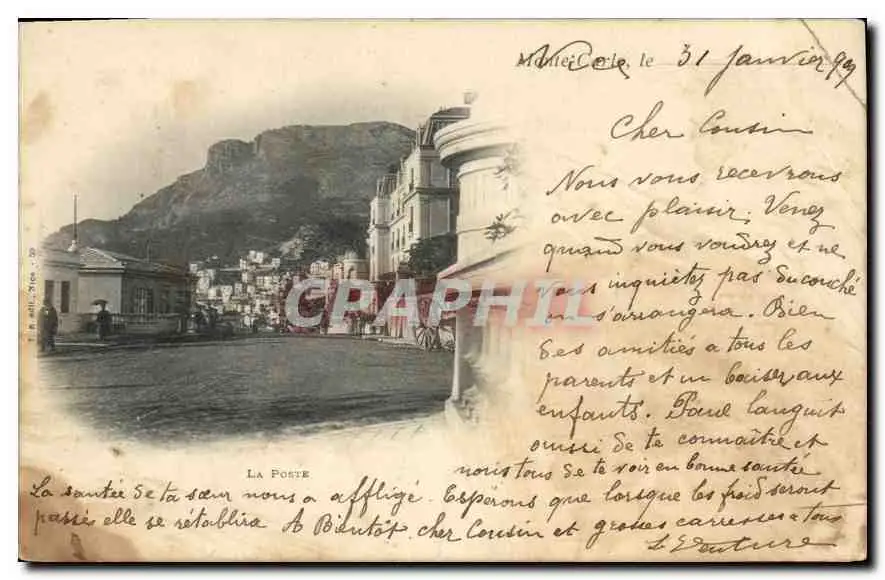 Monte-Carlo, le 31 Janvier 99
Nice
Cher Cousin
Nous vous recevrons
avec plaisir. Venez
quand vous voudrez et ne
vous inquiétez pas du couché
on s'arrangera. Bien
des amitiés a tous les
parents et un baiser aux
enfants. Paul languit
aussi de te connaître et
nous tous de te voir en bonne santée
La santée de ta sœur nous a affligé. Espérons que lorsque les froid seront
passés elle se rétablira A Bientôt cher Cousin et grosses caresses a tous
LA POSTE
édit. Nice
CPAPHIL